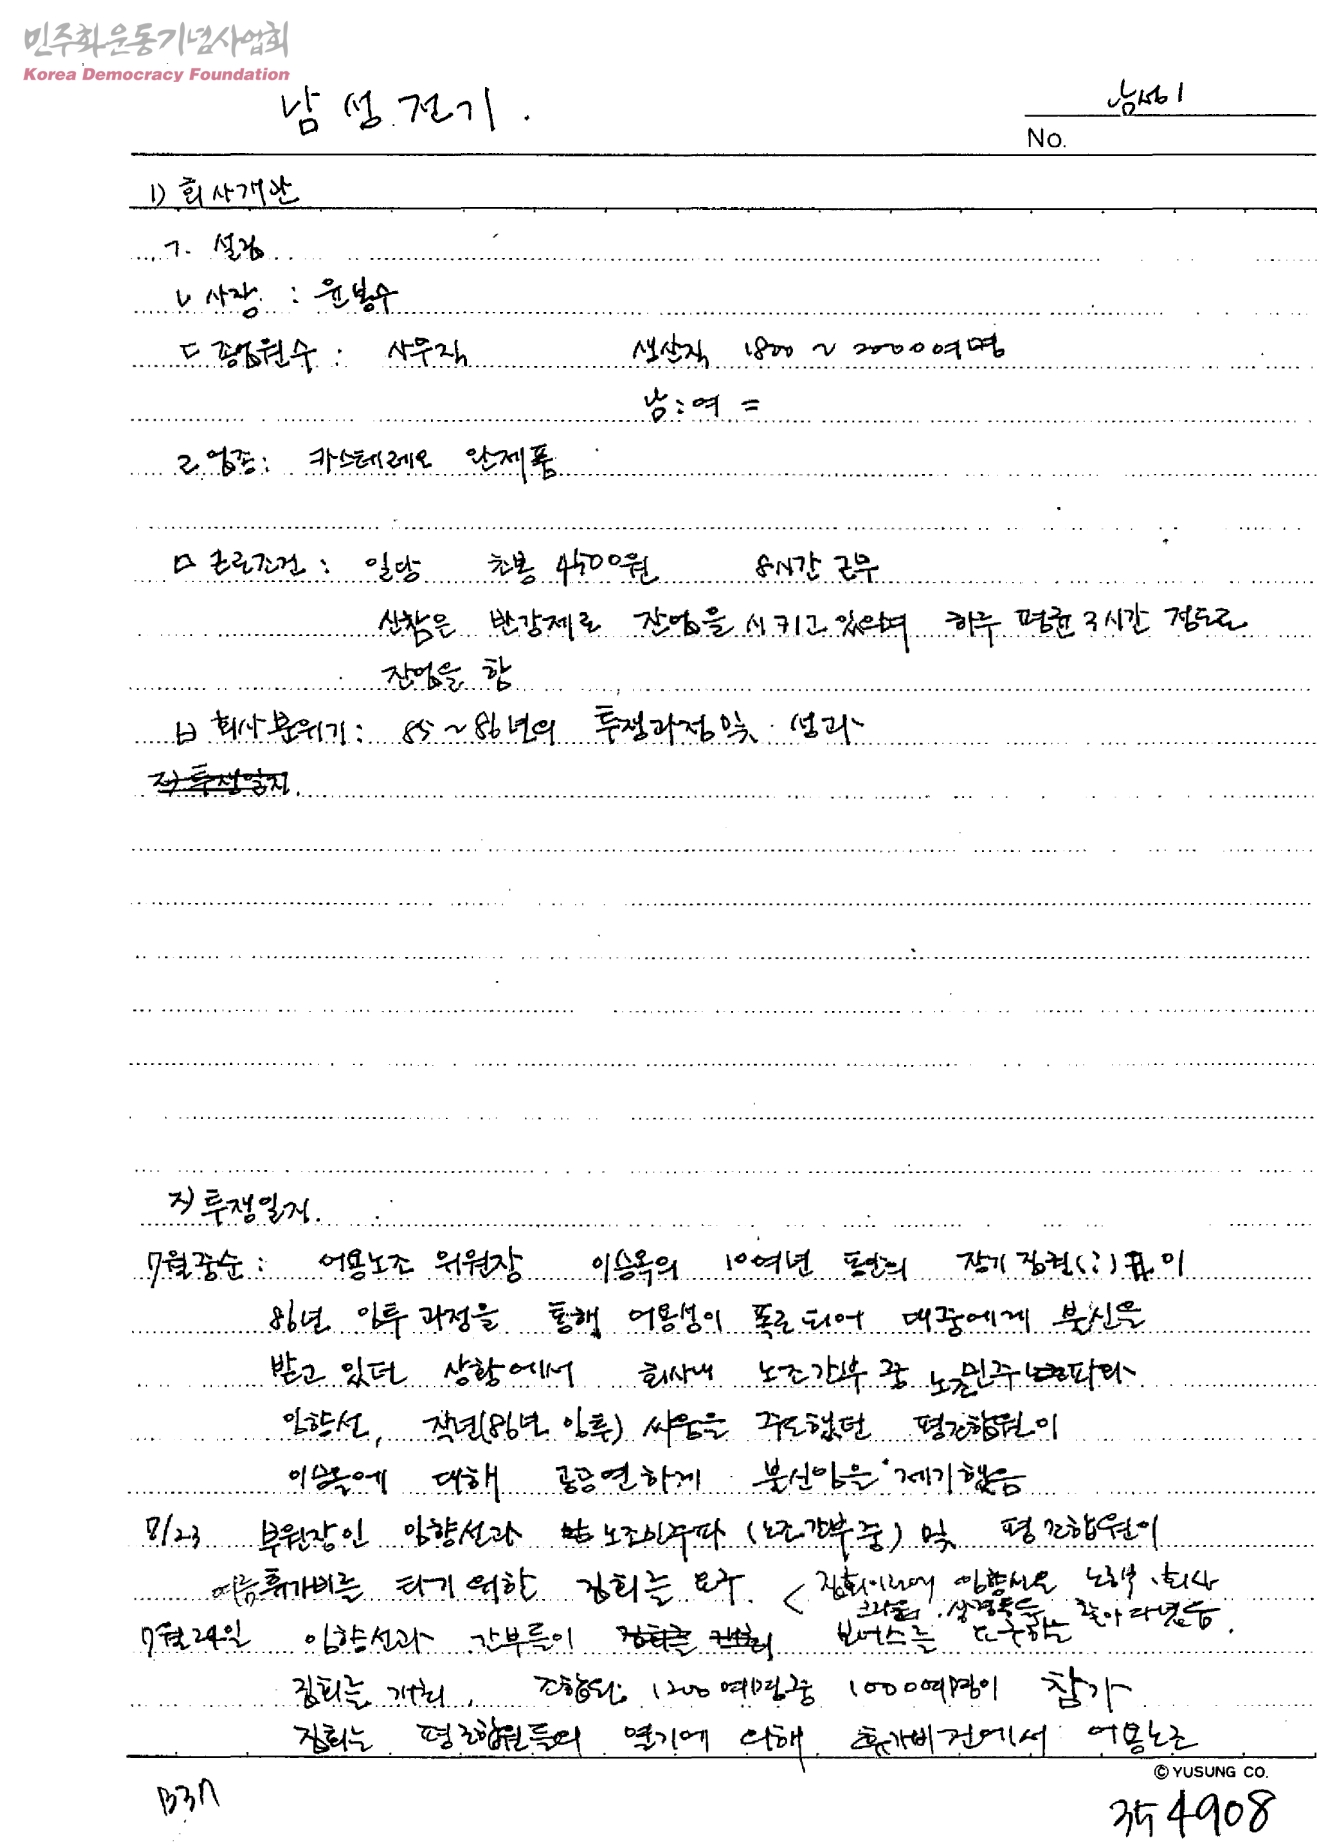 민주화운동기념사업회
Korea Democracy Foundation
남성전기.
남성1
No.
1) 회사개관
ㄱ. 설립
ㄴ 사장 : 윤봉수
ㄷ 종업원수 : 사무직 생산직 1800 ~ 2000여명
남:여 =
ㄹ 업종: 카스테레오 완제품
ㅁ 근로조건 : 일당 초봉 4500원 8시간 근무
신참은 반강제로 잔업을 시키고 있으며 하루 평균 3시간 정도로
잔업을 함
ㅂ 회사분위기: 85 ~ 86년의 투쟁과정및 성과
2) 투쟁일지.
2) 투쟁일지.
7월중순 : 어용노조 위원장 이승옥의 10여년 동안의 장기집권(?)이
86년 임투과정을 통해 어용성이 폭로되어 대중에게 불신을
받고 있던 상황에서 회사내 노조간부 중 노조민주파와
임향선, 작년(86년 임투) 싸움을 주도했던 평조합원이
이승옥에 대해 공공연하게 불신임을 제기했음
7/23 부위원장인 임향선과 노조민주파 (노조간부중) 및 평조합원이
여름휴가비를 타기 위한 집회를 요구. < 집회이전에 임향선은 노동부, 회사
찾아다녔음.
7월24일 임향선과 간부들이 보너스를 요구하는
집회를 개최. 조합원 1200여명중 1000여명이 참가
집회는 평조합원들의 열기에 의해 휴가비건에서 어용노조
© YUSUNG CO.
B37
354908